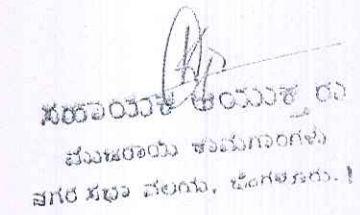 ಸಹಾಯಕ ಆಯುಕ್ತರು
ಮುಜರಾಯಿ ಕಾಮಗಾರಿಗಳು
ನಗರ ಸಭಾ ವಲಯ, ಬೆಂಗಳೂರು.!